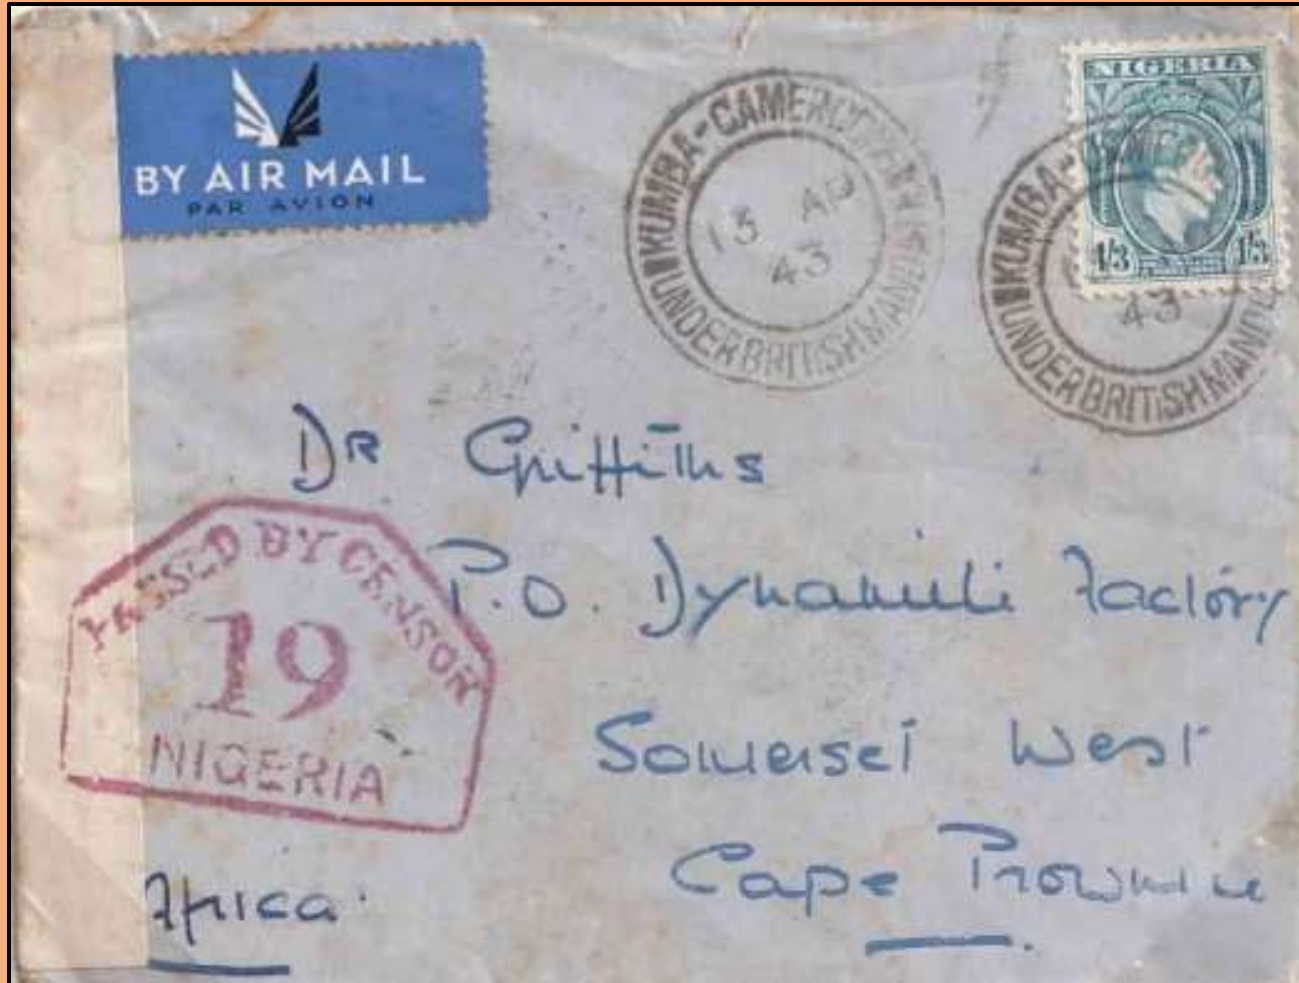 BY AIR MAIL
PAR AVION
KUMBA-CAMEROONS
UNDER BRITISH MANDATE
13 AP
43
NIGERIA
1/3 1/3
KUMBA-
43
UNDER BRITISH MAND
Dr Griffiths
P.O. Dynamite Factory
Somerset West
Cape Province
Africa
PASSED BY CENSOR
19
NIGERIA